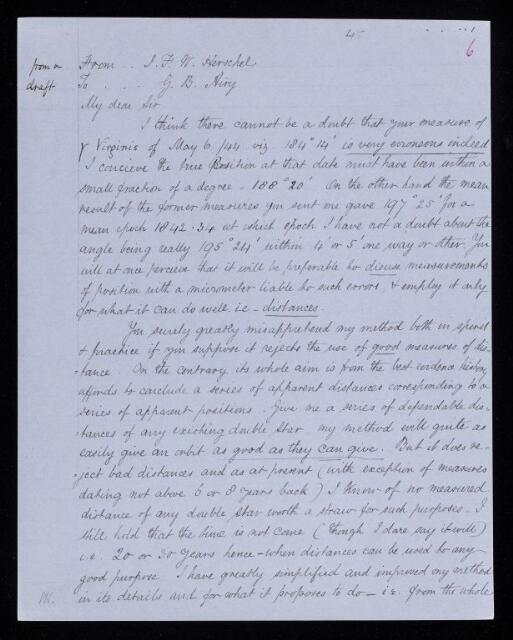 4.
6
from a From .. J. F. W. Herschel
draft To . . . . G. B. Airy
My dear Sir
I think there cannot be a doubt that your measure of
γ Virginis of May 6. /44 viz. 184° 14' is very erroneous indeed
I concieve the true Position at that date must have been within a
small fraction of a degree – 188° 20' On the other hand the mean
result of the former measures you sent me gave 197° 25' for a
mean epoch 1842.34 at which epoch I have not a doubt about the
angle being really 195° 24' within 4' or 5' one way or other. You
will at once perceive that it will be preferable to disuse measurements
of position with a micrometer liable to such errors, & employ it only
for what it can do well, i.e – distances.
You surely greatly misapprehend my method both in spirit
& practice if you suppose it rejects the use of good measures of dis-
-tance. On the contrary its whole aim is from the best evidence history
affords to conclude a series of apparent distances corresponding to a
series of apparent positions. Give me a series of dependable dis-
-tances of any existing double star my method will quite as
easily give an orbit as good as they can give. But it does re-
-ject bad distances and as at present (with exception of measures
dating not above 6 or 8 years back) I know of no measured
distance of any double star worth a straw for such purposes. I
still hold that the time is not come (though I dare say it will)
i.e. 20 or 30 years hence – when distances can be used to any
good purpose. I have greatly simplified and improved my method
in its details and for what it proposes to do – i.e. from the whole